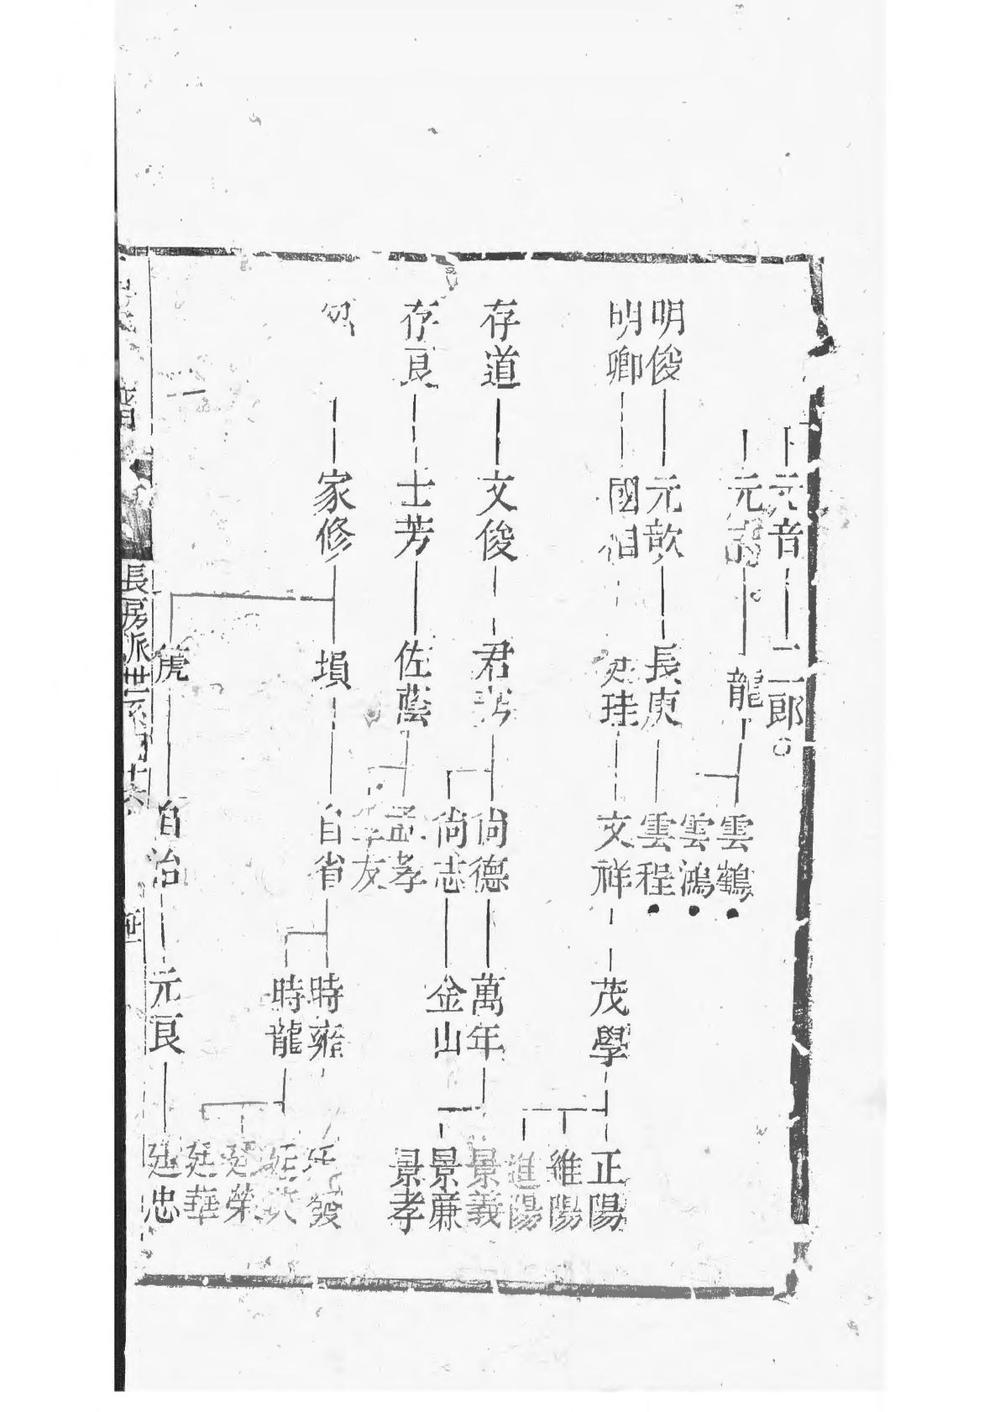 元音 二郎
元 龍 雲鶴
雲鴻
明俊 元歆 長庚 雲程
明卿 國相 廷珪 文祥 茂學 正陽
維陽
進陽
存道 文俊 君 尚德 萬年 景義
景廉
尚志 金山 景孝
存良 士芳 佐蔭 孟孝
孝友
家修 塤 自省 時雍 廷發
時龍 廷
廷榮
廷華
篪 自治 元良 廷忠
長房派世系